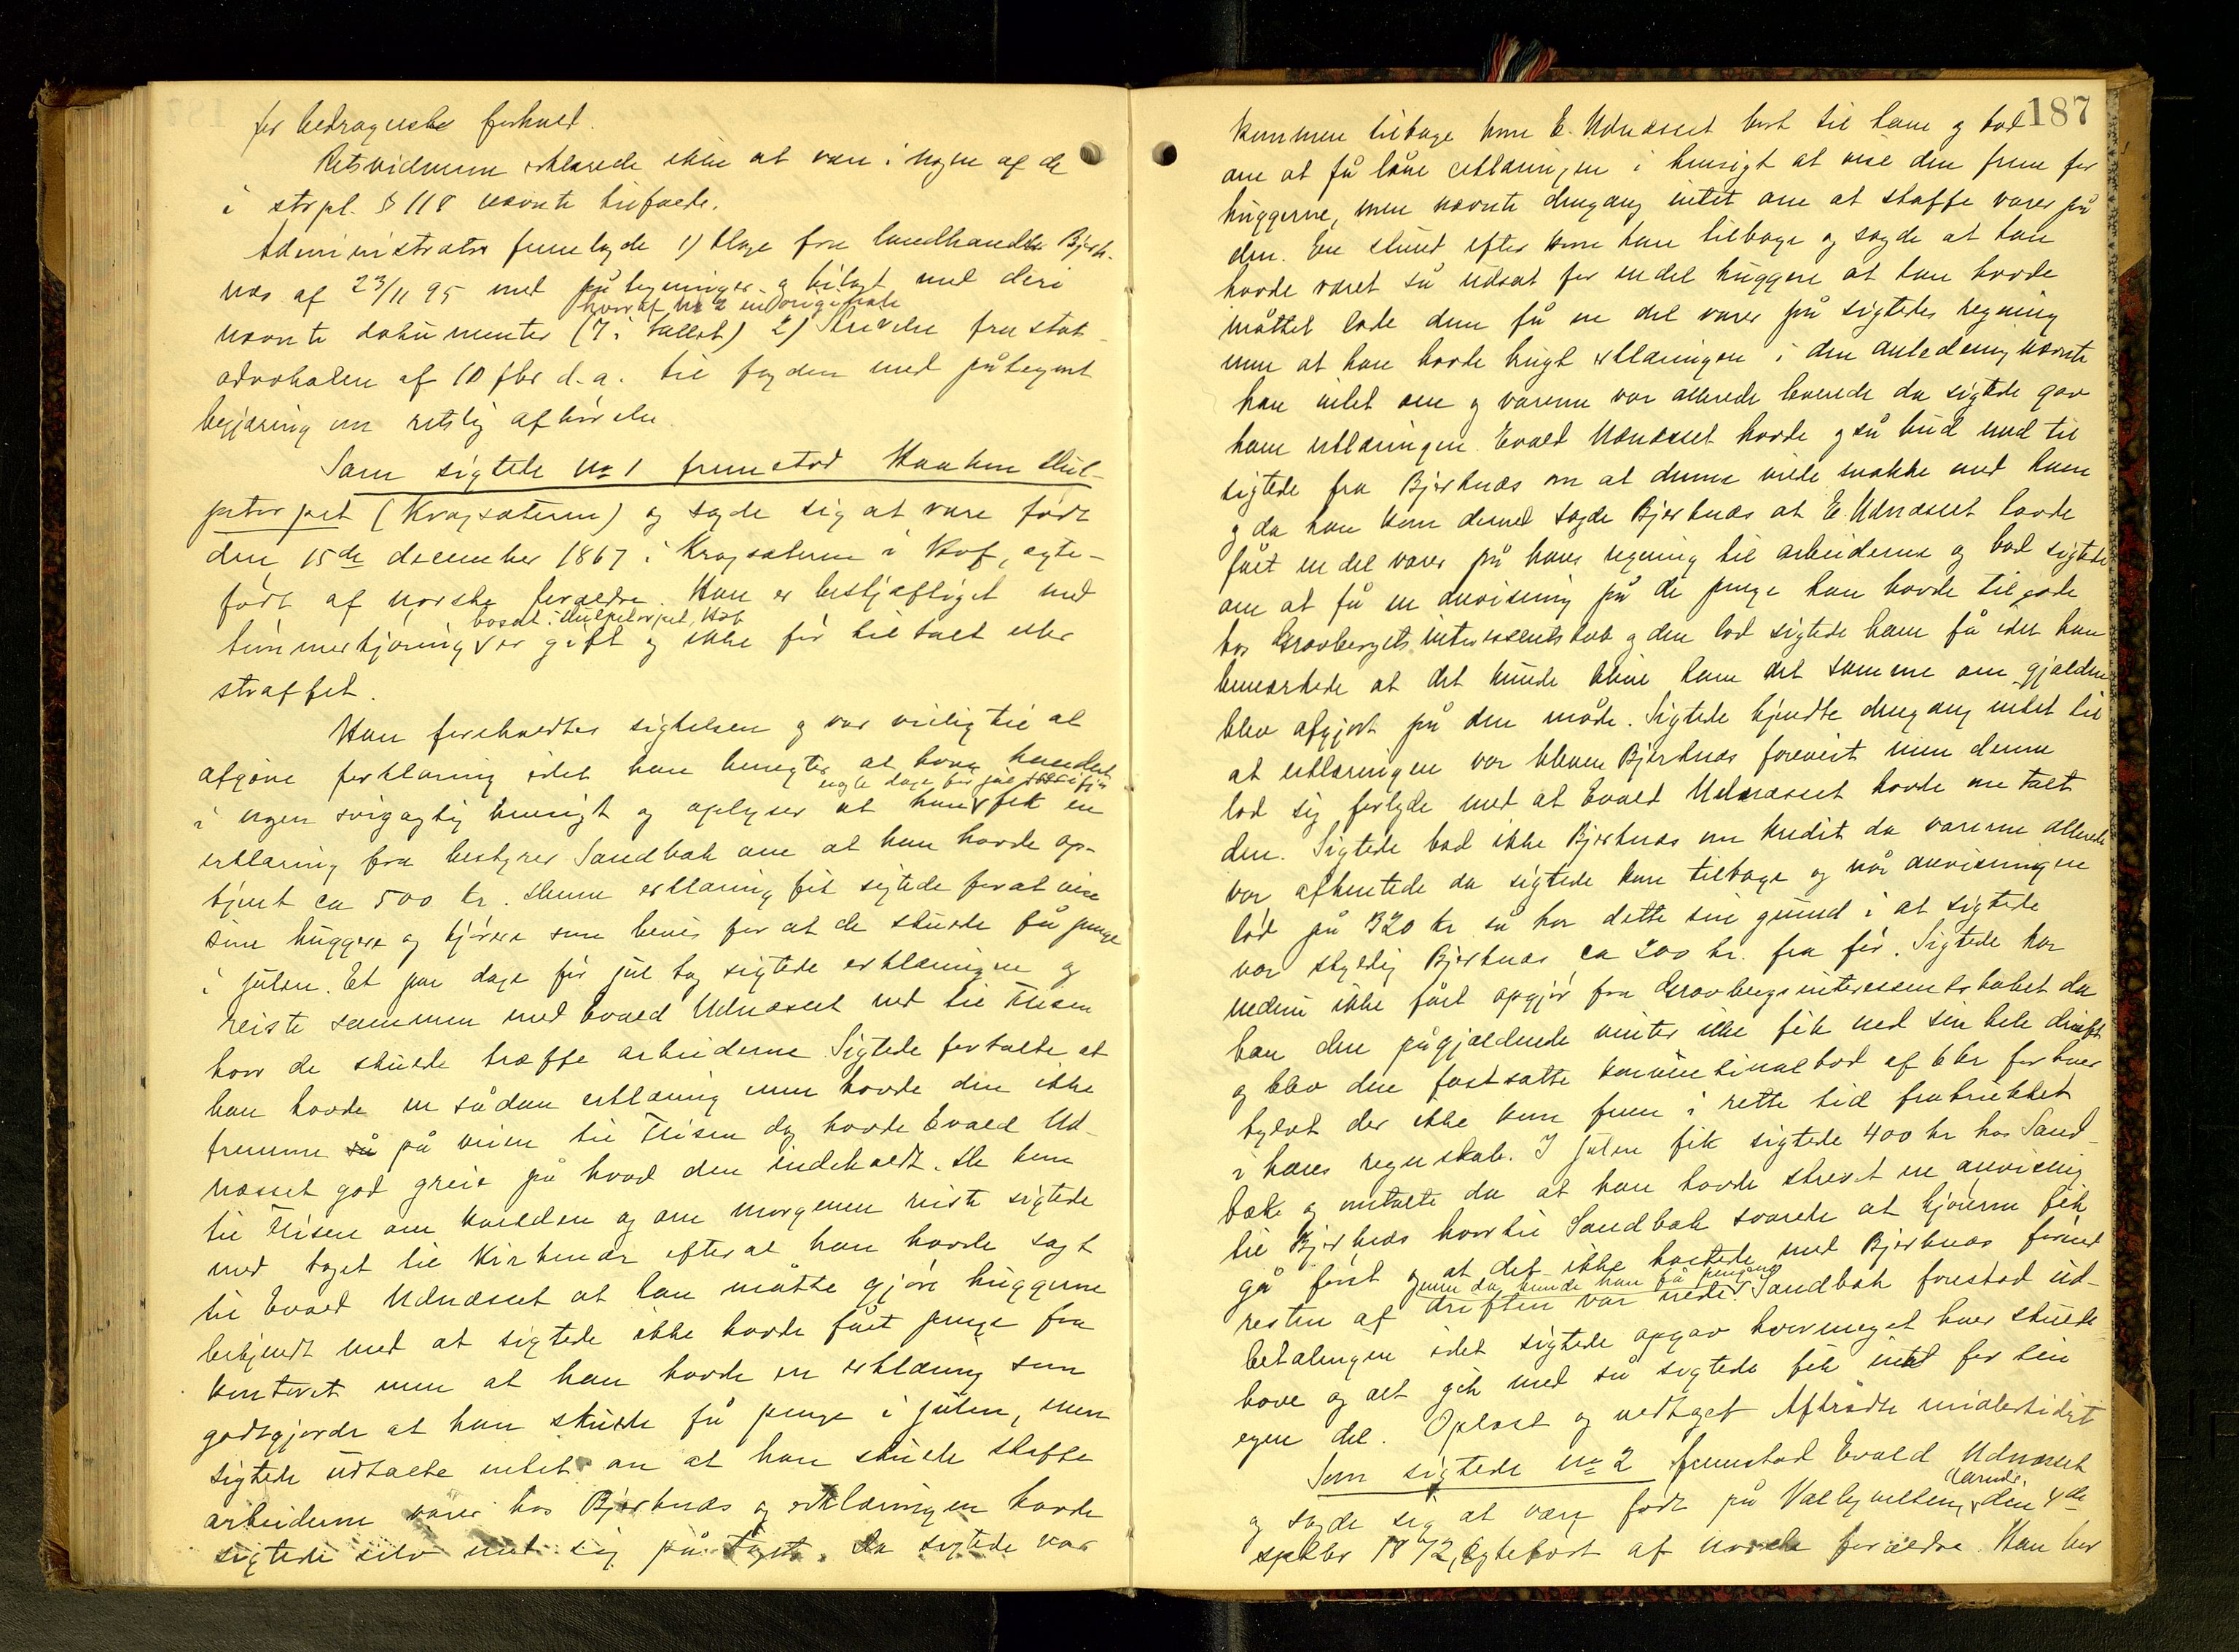 for bedragerske forhold.
Retsvidnerne erklærede ikke at være i nogen af de
i strpl. § 118 nævnte tilfælde.
Administrator fremlagde 1) klage fra landhandler Bjerk-
næs af 23/11 95 med påtegninger og bilagt med deri
hvoraf No 2 in originale
nævnte dokumenter (7 i tallet) 2) Skrivelse fra stats-
advokaten af 10 fbr d.a. til fogden med påtegnet
begjæring om retslig afhørelse.
Som sigtede No 1 fremstod Haakon Hul-
petorpet (Kragsæteren) og sagde sig at være født
den 15de december 1867 i Kragsæteren i Hof, egte-
født af norske forældre. Han er beskjæftiget med
bosat i Hulpetorpet, Hof
tømmerkjøring er gift og ikke før tiltalt eller
straffet.
Han foreholdtes sigtelsen og var villig til at
afgive forklaring idet han benegter at have handlet
nogle dage før jul
i nogen svigagtig hensigt og oplyser at han fik en
erklæring fra bestyrer Sandbak om at han havde op-
tjent ca 500 kr. Denne erklæring fik sigtede for at vise
sine huggere og kjørere som bevis for at de skulde få penge
i julen. Et par dage før jul tog sigtede erklæringen og
reiste sammen med Evald Udnæsset ned til Flisen
hvor de skulde træffe arbeiderne. Sigtede fortalte at
han havde en sådan erklæring men havde den ikke
fremme på veien til Flisen dog havde Evald Ud-
næsset god greie på hvad den indeholdt. De kom
til Flisen om kvelden og om morgenen reiste sigtede
med toget til Kirkenær efter at han havde sagt
til Evald Udnæsset at han måtte gjøre huggerne
bekjendt med at sigtede ikke havde fået penge fra
kontoret men at han havde en erklæring som
godtgjorde at han skulde få penge i julen, men
sigtede udtalte intet om at han skulde skaffe
arbeiderne varer hos Bjerknæs og erklæringen havde
sigtede selv med sig på toget. Da sigtede var
187
kommen tilbage kom E. Udnæsset bort til ham og bad
om at få låne erklæringen i hensigt at vise den frem for
huggerne, men nævnte dengang intet om at skaffe varer på
den. En stund efter kom han tilbage og sagde at han
havde været så udsat for endel huggere at han havde
måttet lade dem få en del varer på sigtedes regning
men at han havde brugt erklæringen i den anledning nævnte
han intet om og varerne var allerede leverede da sigtede gav
ham erklæringen. Evald Udnæsset havde også bud med til
sigtede fra Bjerknæs om at denne vilde snakke med ham
og da han kom derned sagde Bjerknæs at E. Udnæsset havde
fået en del varer på hans regning til arbeiderne og bad sigtede
om at få en anvisning på de penge han havde tilgode
hos Gravbergets interessentskab og den lod sigtede ham få idet han
bemærkede at det kunde blive ham det samme om gjælden
blev afgjort på den måde. Sigtede kjendte dengang intet til
at erklæringen var bleven Bjerknæs forevist men denne
lod sig forlyde med at Evald Udnæsset havde omtalt
den. Sigtede bad ikke Bjerknæs om kredit da varerne allerede
var afhentede da sigtede kom tilbage og når anvisningen
lød på 320 kr så har dette sin grund i at sigtede
var skyldig Bjerknæs ca 200 kr. fra før. Sigtede har
endnu ikke fået opgjør fra Gravbergsinteressentskabet da
han den pågjældende vinter ikke fik ned sin hele drift
og blev den fastsatte konventionalbod af 6 kr for hver
tylvt der ikke kom frem i rette tid fratrukket
i hans regnskab. I julen fik sigtede 400 kr hos Sand-
bak og omtalte da at han havde skrevet en anvisning
til Bjerknæs hvortil Sandbak svarede at kjørerne fik
gå først og at det ikke hastede med Bjerknæs førend
men da kunde han få pengene
resten af driften var nede. Sandbak forestod ud-
betalingen idet sigtede opgav hvormeget hver skulde
have og alt gik med så sigtede fik intet for sin
egen del. Oplæst og vedtaget Aftrådte midlertidigt
Som sigtede No 2 fremstod Evald Udnæsset
og sagde sig at være født på Valbyvelten, den 4de
spbbr 1872, egtefødt af norske forældre. Han har